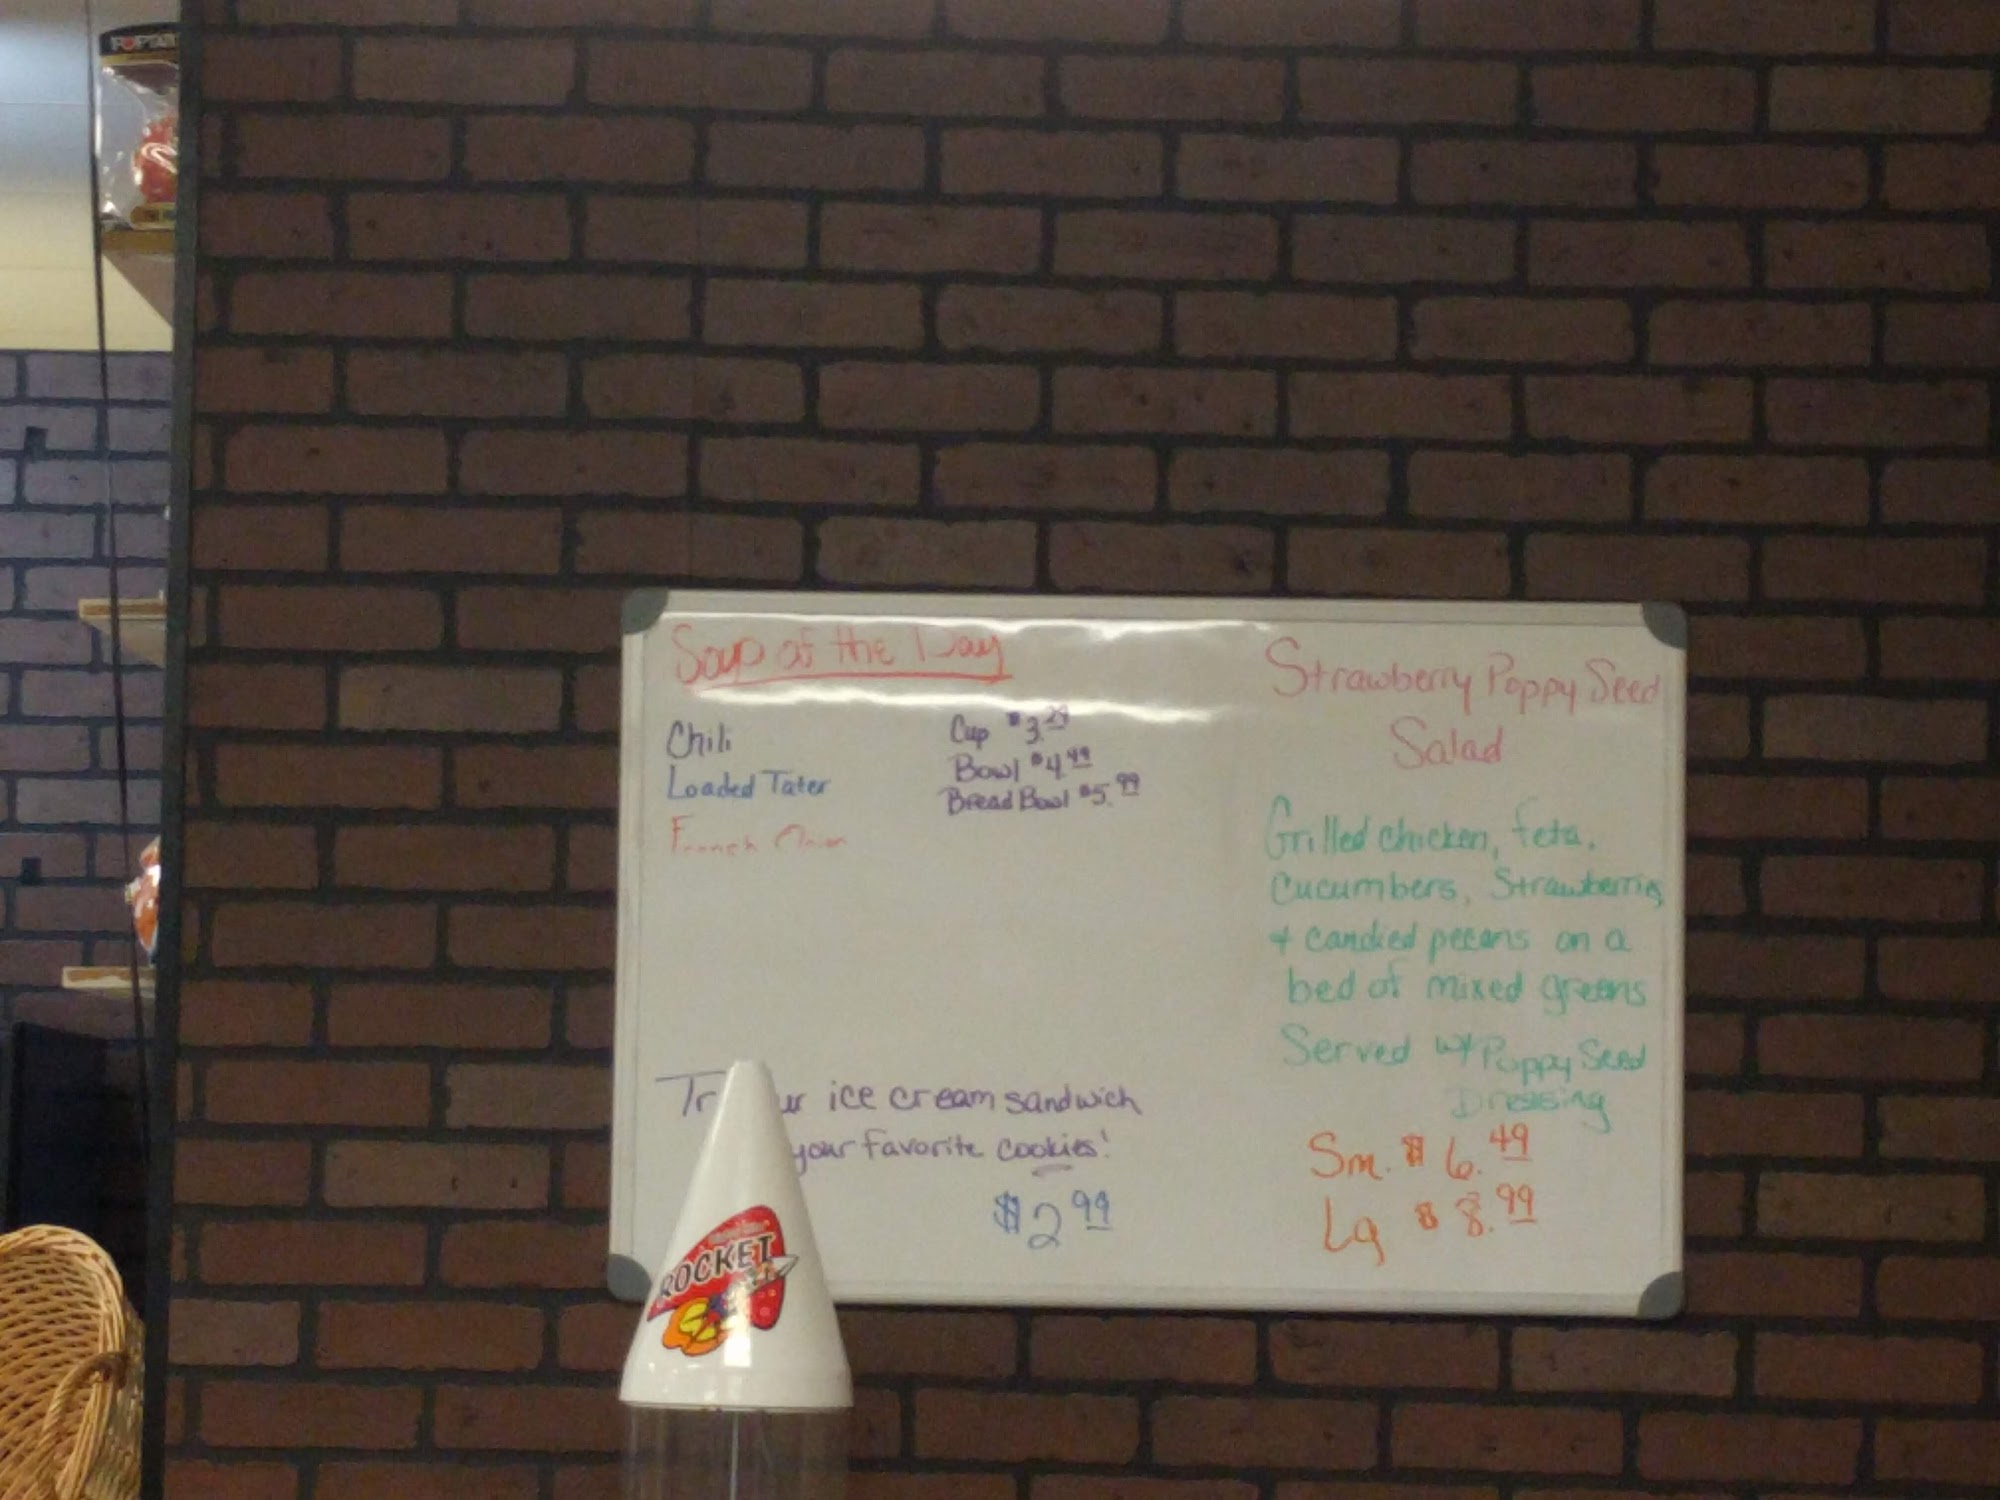 Soup of the Day
Chili
Loaded Tater
French Onion
Cup $3.29
Bowl $4.49
Bread Bowl $5.99
Try our ice cream sandwich
your favorite cookies!
$2.99
Strawberry Poppy Seed
Salad
Grilled chicken, feta,
cucumbers, Strawberries
+ candied pecans on a
bed of mixed greens
Served w/ Poppy Seed
Dressing
Sm. $6.49
Lg $8.99
ROCKET